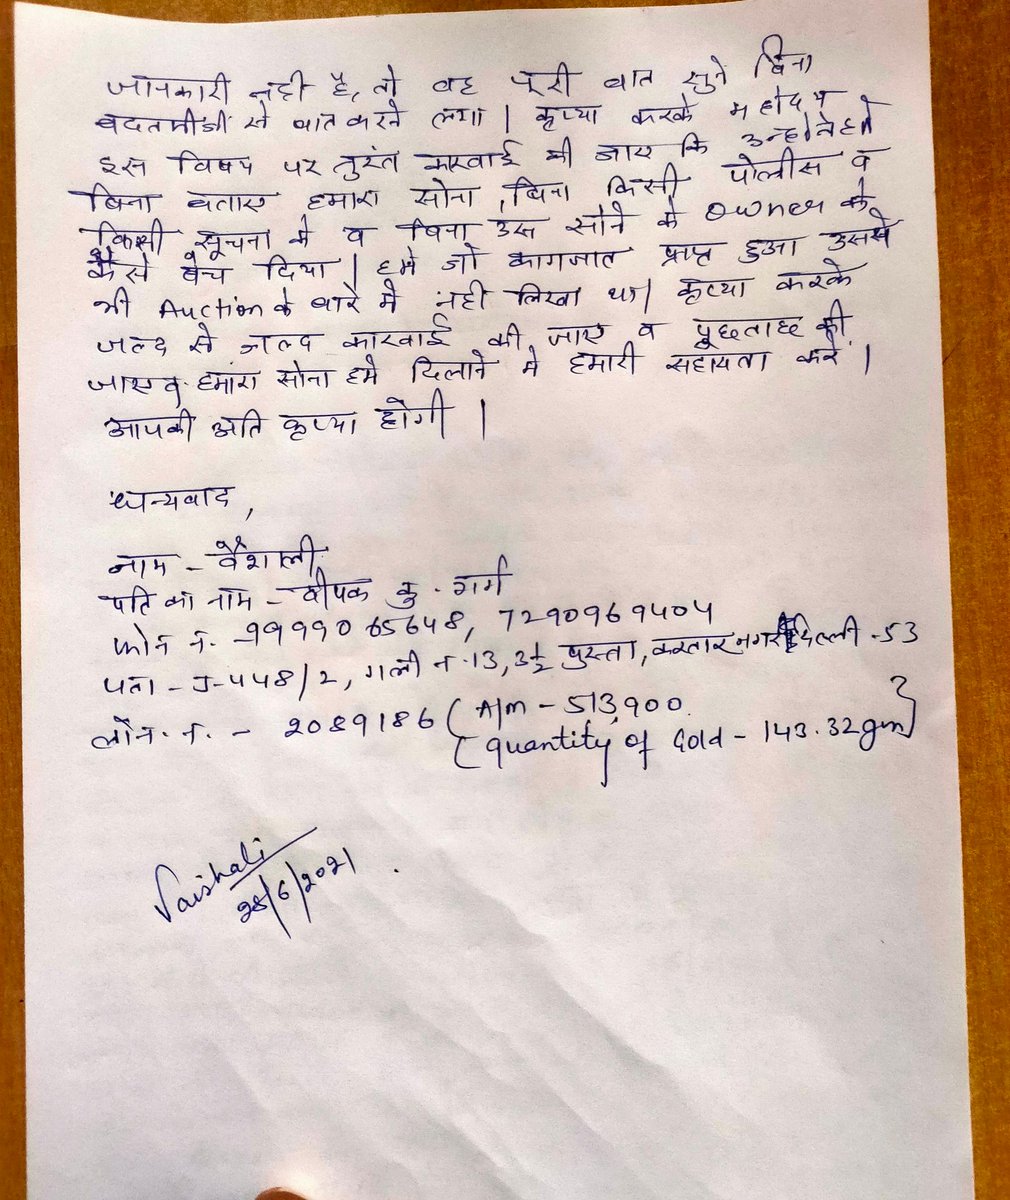 जानकारी नही है, तो वह पूरी बात सुने बिना
बदतमीजी से बात करने लगा | कृप्या करके महोदय
इस विषय पर तुरंत कारवाई की जाए कि उन्होने हमे
बिना बताए हमारा सोना, बिना किसी पोलीस व
किसी सूचना मे व बिना उस सोने के owner के
कैसे बेच दिया | हमे जो कागजात प्राप्त हुआ उसमे
भी Auction के बारे मे नही लिखा था | कृप्या करके
जल्द से जल्द कारवाई की जाए व पूछताछ की
जाए व हमारा सोना हमे दिलाने मे हमारी सहायता करे |
आपकी अति कृप्या होगी |
धन्यवाद,
नाम - वैशाली
पति का नाम - दीपक कु. गर्ग
फोन नं. - 9999065648, 7290969404
पता - J-448/2, गली नं-13, 3½ पुस्ता, करतार नगर दिल्ली-53
लोन. नं. - 2089186 (A/m - 513,900
(quantity of Gold - 143.32gm)
Vaishali
28/6/2021